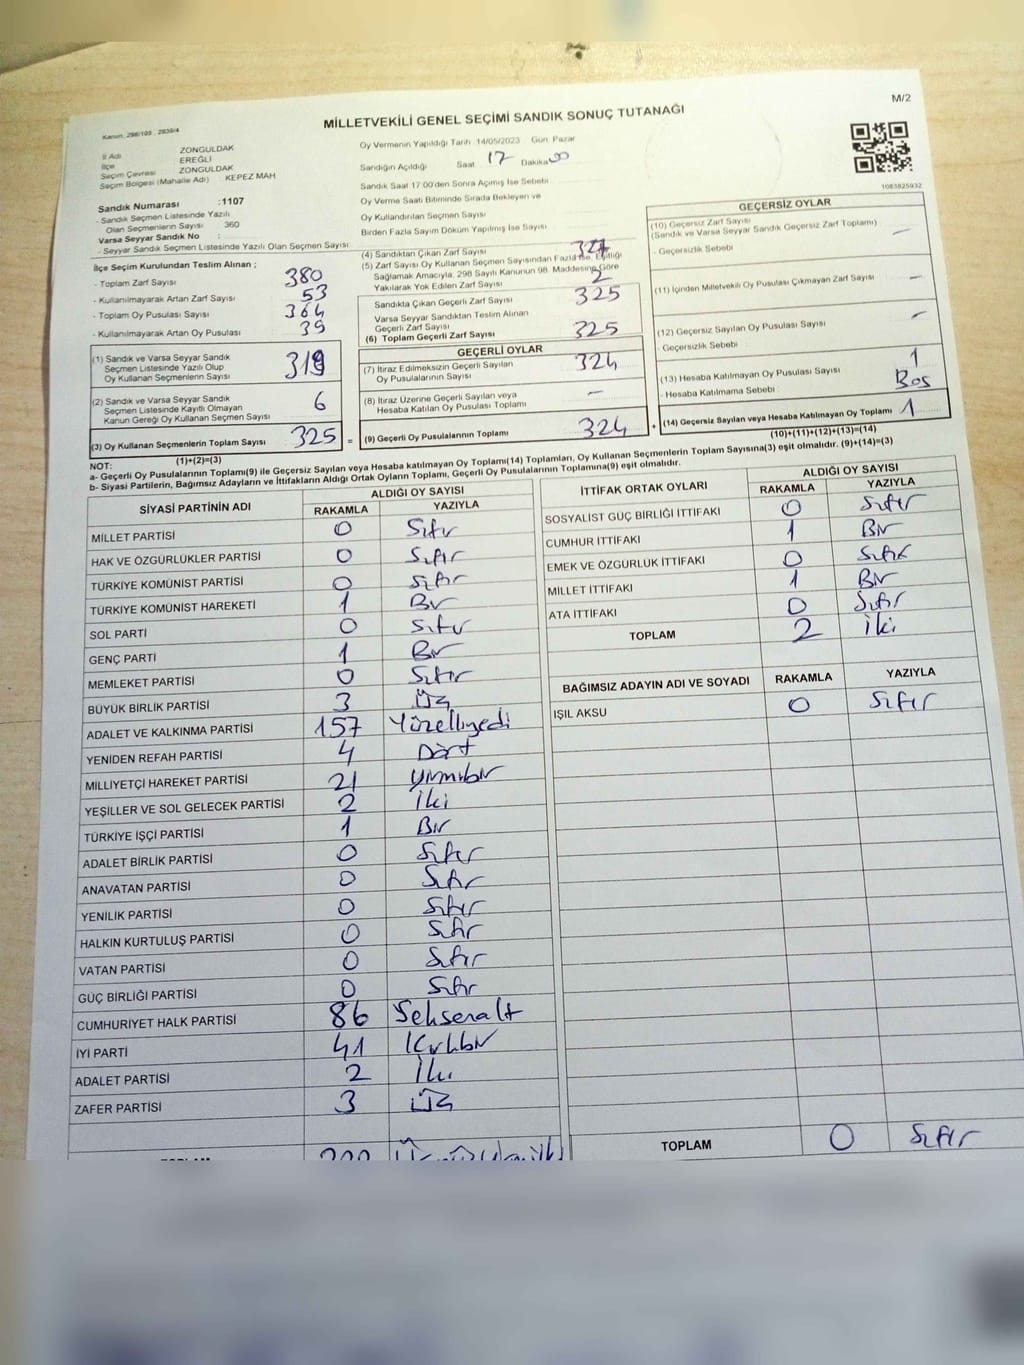 M/2
MİLLETVEKİLİ GENEL SEÇİMİ SANDIK SONUÇ TUTANAĞI
Kanun, 298/105 , 2839/4
İl Adı ZONGULDAK
İlçe EREĞLİ
Seçim Çevresi ZONGULDAK
Seçim Bölgesi (Mahalle Adı) KEPEZ MAH
Sandık Numarası :1107
- Sandık Seçmen Listesinde Yazılı
Olan Seçmenlerin Sayısı : 360
Varsa Seyyar Sandık No :
- Seyyar Sandık Seçmen Listesinde Yazılı Olan Seçmen Sayısı
Oy Vermenin Yapıldığı Tarih :14/05/2023 Gün: Pazar
Sandığın Açıldığı Saat 17 Dakika 00
Sandık Saat 17:00'den Sonra Açımış İse Sebebi
Oy Verme Saati Bitiminde Sırada Bekleyen ve
Oy Kullandırılan Seçmen Sayısı
Birden Fazla Sayım Döküm Yapılmış İse Sayısı
1083825932
İlçe Seçim Kurulundan Teslim Alınan :
- Toplam Zarf Sayısı 380
- Kullanılmayarak Artan Zarf Sayısı 53
- Toplam Oy Pusulası Sayısı 364
- Kullanılmayarak Artan Oy Pusulası 39
(1) Sandık ve Varsa Seyyar Sandık
Seçmen Listesinde Yazılı Olup
Oy Kullanan Seçmenlerin Sayısı 319
(2) Sandık ve Varsa Seyyar Sandık
Seçmen Listesinde Kayıtlı Olmayan
Kanun Gereği Oy Kullanan Seçmen Sayısı 6
(3) Oy Kullanan Seçmenlerin Toplam Sayısı 325 =
(1)+(2)=(3)
(4) Sandıktan Çıkan Zarf Sayısı 327
(5) Zarf Sayısı Oy Kullanan Seçmen Sayısından Fazla İse, Eşitliği
Sağlamak Amacıyla, 298 Sayılı Kanunun 98. Maddesine Göre
Yakılarak Yok Edilen Zarf Sayısı 2
Sandıkta Çıkan Geçerli Zarf Sayısı 325
Varsa Seyyar Sandıktan Teslim Alınan
Geçerli Zarf Sayısı
(6) Toplam Geçerli Zarf Sayısı 325
GEÇERLİ OYLAR
(7) İtiraz Edilmeksizin Geçerli Sayılan
Oy Pusulalarının Sayısı 324
(8) İtiraz Üzerine Geçerli Sayılan veya
Hesaba Katılan Oy Pusulası Toplamı –
(9) Geçerli Oy Pusulalarının Toplamı 324 +
GEÇERSİZ OYLAR
(10) Geçersiz Zarf Sayısı
(Sandık ve Varsa Seyyar Sandık Geçersiz Zarf Toplamı) –
- Geçersizlik Sebebi
(11) İçinden Milletvekili Oy Pusulası Çıkmayan Zarf Sayısı –
(12) Geçersiz Sayılan Oy Pusulası Sayısı –
- Geçersizlik Sebebi :
(13) Hesaba Katılmayan Oy Pusulası Sayısı 1
- Hesaba Katılmama Sebebi : Boş
(14) Geçersiz Sayılan veya Hesaba Katılmayan Oy Toplamı 1
(10)+(11)+(12)+(13)=(14)
NOT:
a- Geçerli Oy Pusulalarının Toplamı(9) ile Geçersiz Sayılan veya Hesaba katılmayan Oy Toplamı(14) Toplamları, Oy Kullanan Seçmenlerin Toplam Sayısına(3) eşit olmalıdır. (9)+(14)=(3)
b- Siyasi Partilerin, Bağımsız Adayların ve İttifakların Aldığı Ortak Oyların Toplamı, Geçerli Oy Pusulalarının Toplamına(9) eşit olmalıdır.
SİYASİ PARTİNİN ADI ALDIĞI OY SAYISI
RAKAMLA YAZIYLA
MİLLET PARTİSİ 0 Sıfır
HAK VE ÖZGÜRLÜKLER PARTİSİ 0 Sıfır
TÜRKİYE KOMÜNİST PARTİSİ 0 Sıfır
TÜRKİYE KOMÜNİST HAREKETİ 1 Bir
SOL PARTİ 0 Sıfır
GENÇ PARTİ 1 Bir
MEMLEKET PARTİSİ 0 Sıfır
BÜYÜK BİRLİK PARTİSİ 3 Üç
ADALET VE KALKINMA PARTİSİ 157 Yüzelliyedi
YENİDEN REFAH PARTİSİ 4 Dört
MİLLİYETÇİ HAREKET PARTİSİ 21 yirmibir
YEŞİLLER VE SOL GELECEK PARTİSİ 2 İki
TÜRKİYE İŞÇİ PARTİSİ 1 Bir
ADALET BİRLİK PARTİSİ 0 Sıfır
ANAVATAN PARTİSİ 0 Sıfır
YENİLİK PARTİSİ 0 Sıfır
HALKIN KURTULUŞ PARTİSİ 0 Sıfır
VATAN PARTİSİ 0 Sıfır
GÜÇ BİRLİĞİ PARTİSİ 0 Sıfır
CUMHURİYET HALK PARTİSİ 86 Seksenaltı
İYİ PARTİ 41 Kırkbir
ADALET PARTİSİ 2 İki
ZAFER PARTİSİ 3 Üç
İTTİFAK ORTAK OYLARI ALDIĞI OY SAYISI
RAKAMLA YAZIYLA
SOSYALİST GÜÇ BİRLİĞİ İTTİFAKI 0 Sıfır
CUMHUR İTTİFAKI 1 Bir
EMEK VE ÖZGÜRLÜK İTTİFAKI 0 Sıfır
MİLLET İTTİFAKI 1 Bir
ATA İTTİFAKI 0 Sıfır
TOPLAM 2 İki
BAĞIMSIZ ADAYIN ADI VE SOYADI RAKAMLA YAZIYLA
IŞIL AKSU 0 Sıfır
TOPLAM 0 Sıfır